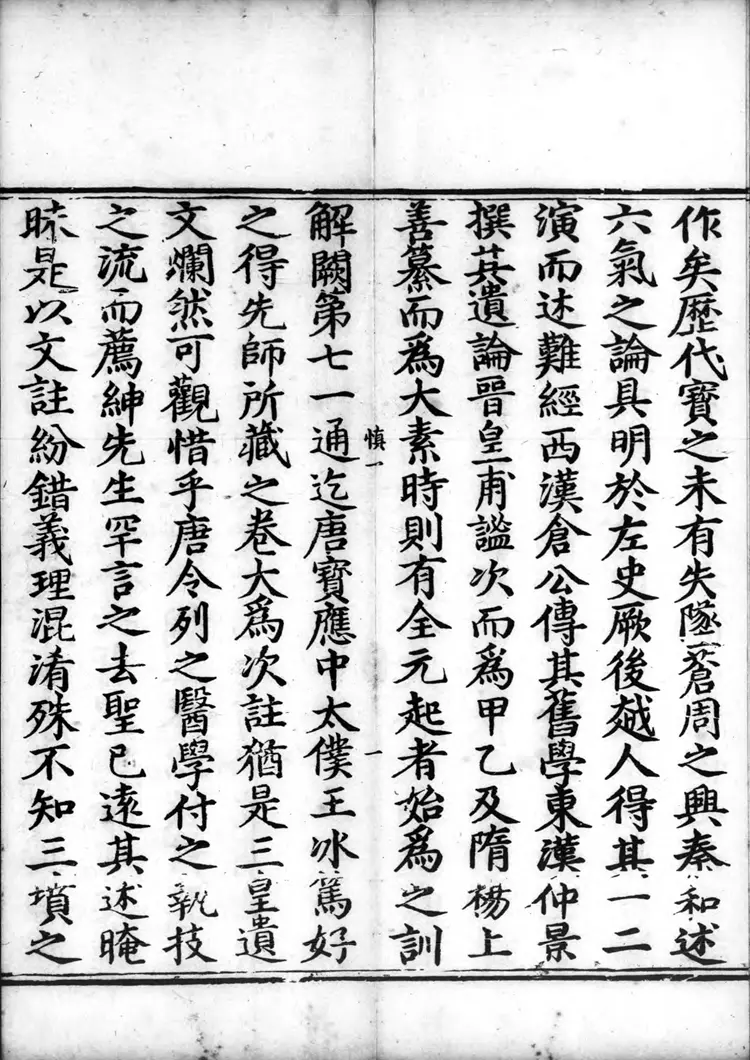 作矣歷代寳之未有失墜蒼周之興秦和述
六氣之論具明於左史厥後越人得其一二
演而述難經西漢倉公傳其舊學東漢仲景
撰其遺論晉皇甫謐次而爲甲乙及隋楊上
善纂而爲大素時則有全元起者始爲之訓
解闕第七一通迄唐寳應中太僕王冰篤好
之得先師所藏之卷大爲次註猶是三皇遺
文爛然可觀惜乎唐令列之醫學付之執技
之流而薦紳先生罕言之去聖已遠其述晻
昧是以文註紛錯義理混淆殊不知三墳之
慎一
一